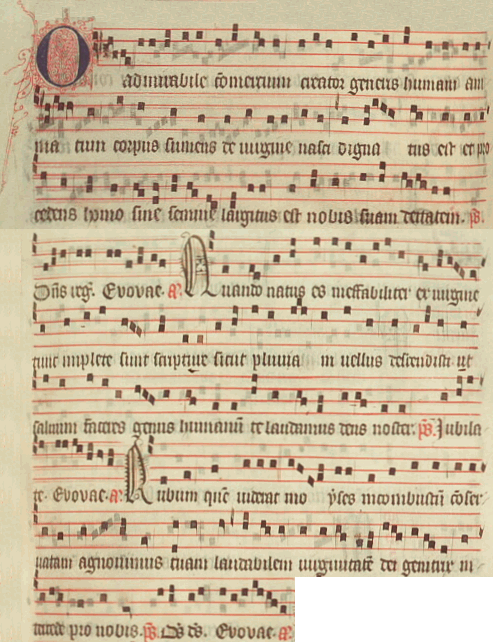 O admirabile comercium creator generis humani ani
ma tum corpus sumens de virgine nasci digna tus est et pro
cedens homo sine semine largitus est nobis suam deitatem. ps.
Dns reg. Evovae. a. Quando natus es ineffabiliter ex virgine
tunc implete sunt scripture sicut pluvia in vellus descendisti ut
salvum faceres genus humanu te laudamus deus noster. ps. Jubila
te. Evovae. a. Rubum que viderat mo yses incombustu coser
vatam agnovimus tuam laudabilem virginitate dei genitrix in
tercede pro nobis. ps. Evovae. a.